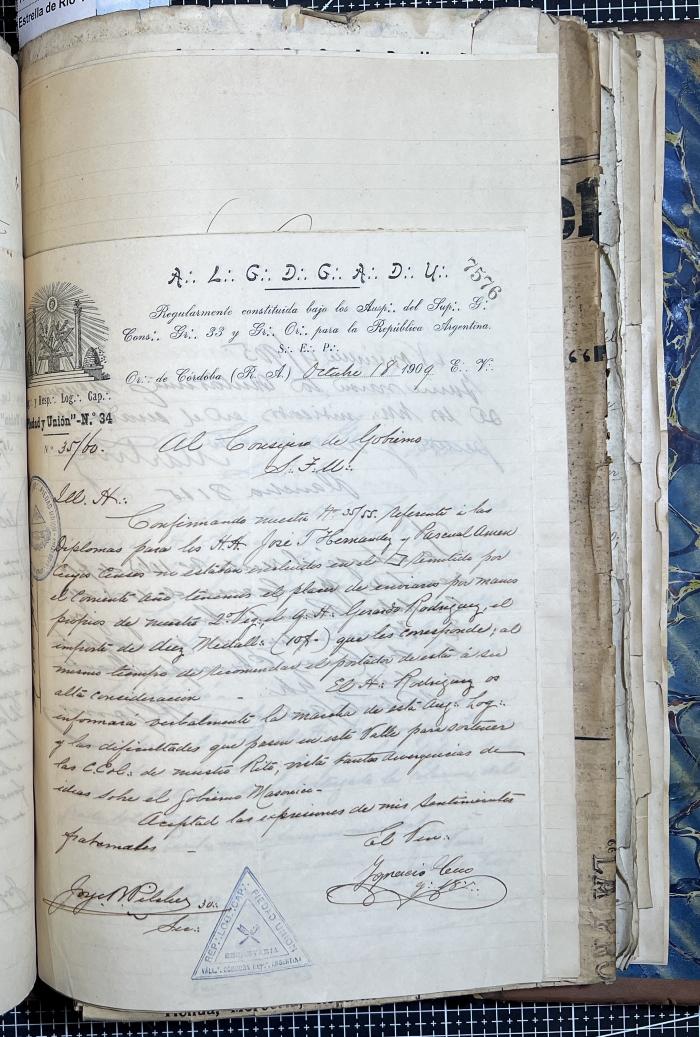 Estrella de Rio
A∴ L∴ G∴ D∴ G∴ A∴ D∴ U∴
7576
Regularmente constituida bajo los Ausp∴ del Sup∴ G∴
Cons∴ Gr∴ 33 y Gr∴ Or∴ para la República Argentina.
S∴ E∴ P∴
Or∴ de Córdoba (R. A.) Octubre 18 1909 E∴ V∴
y Resp∴ Log∴ Cap∴
"Piedad y Unión"-N.° 34
N° 35/60.
Al Consejero de Gobierno
S∴F∴U∴
Ill. H∴
Confirmando nuestra N° 35/55 referente á los
Diplomas para los H.H. José I Hernandez y Pascual
cuyos censos no estaban incluidos en el remitido por
el corriente año tenemos el placer de enviaros por manos
propias de nuestro 2° Vig∴ el q∴ H∴ Gerardo Rodriguez, el
importe de diez Medall∴ (10\) que les corresponde; al
mismo tiempo de recomendar el portador de esta á su
alta consideración - El H∴ Rodriguez os
informará verbalmente la marcha de esta Aug∴ Log∴
y las dificultades que pasan en este Valle para sostener
las C.Col∴ de nuestro Rito, vista tantas divergencias de
ideas sobre el Gobierno Masonico -
Aceptad las expresiones de mis sentimientos
fraternales -
El Ven∴
Ignacio
g∴ 18∴
30∴
Sec∴
RESP∴ LOG∴ CAP∴ PIEDAD Y UNION
SECRETARIA
VALL∴ CORDOBA REP∴ ARGENTINA
el